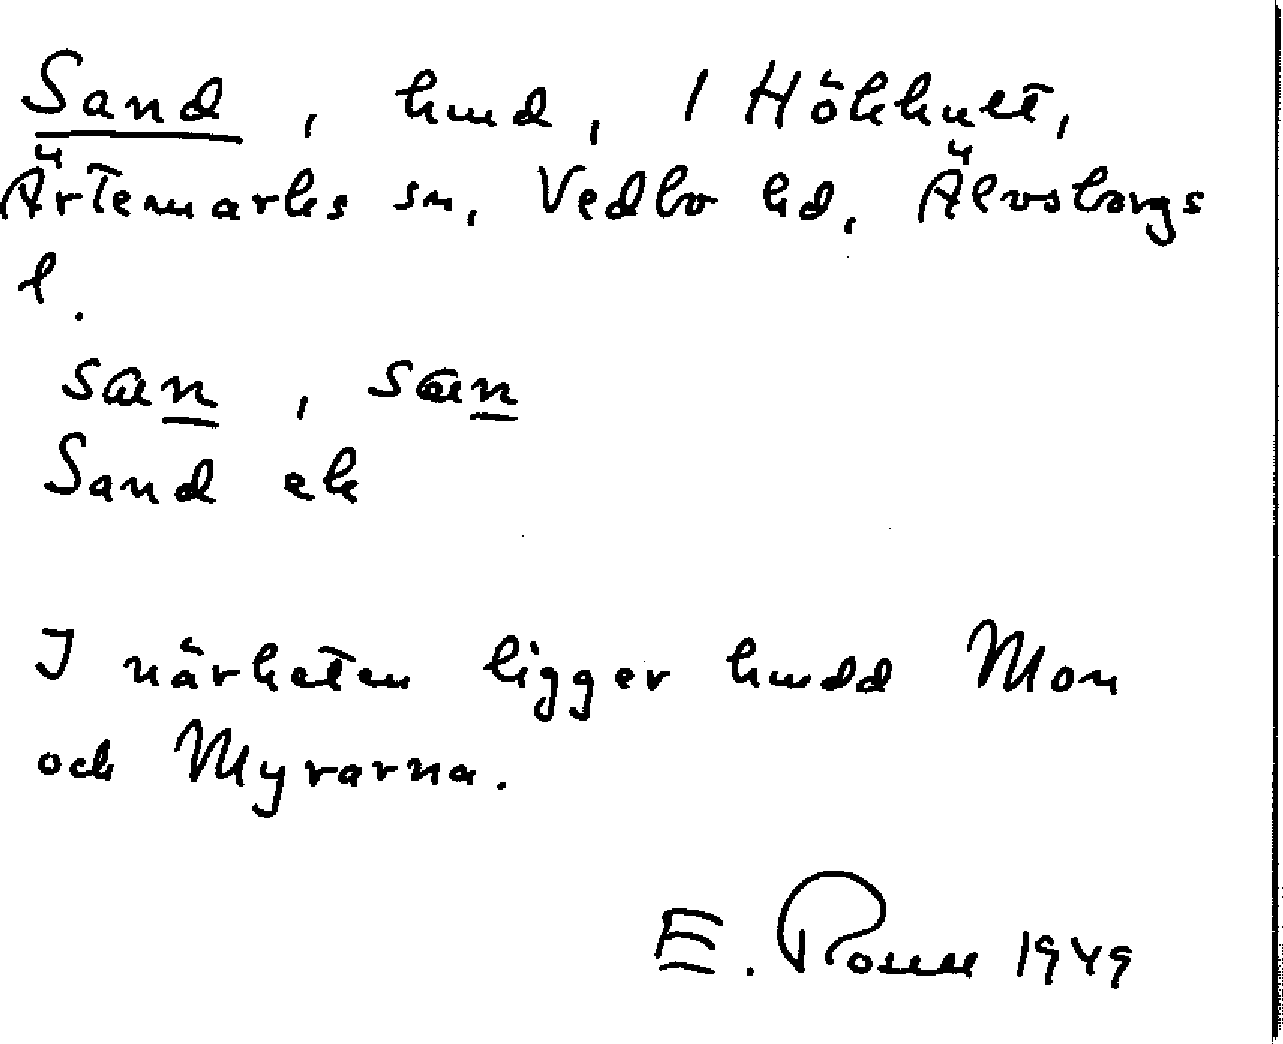 Sand, hmd, 1 Hökhult,
Ärtemarks sn, Vedbo hd, Älvsborgs
l.
san, sæn
Sand ek
I närheten ligger hmdd Mon
och Myrarna.
E. Rosell 1949